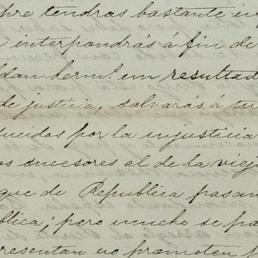 bre tendras bastante in
interpondrás á fin de
en resultad
de justicia, salvarás á tu
ucidos por la injusticia
os sucesores al de la viej
que de Republica pasan
blica; pero mucho se pa
presentan no prometen p